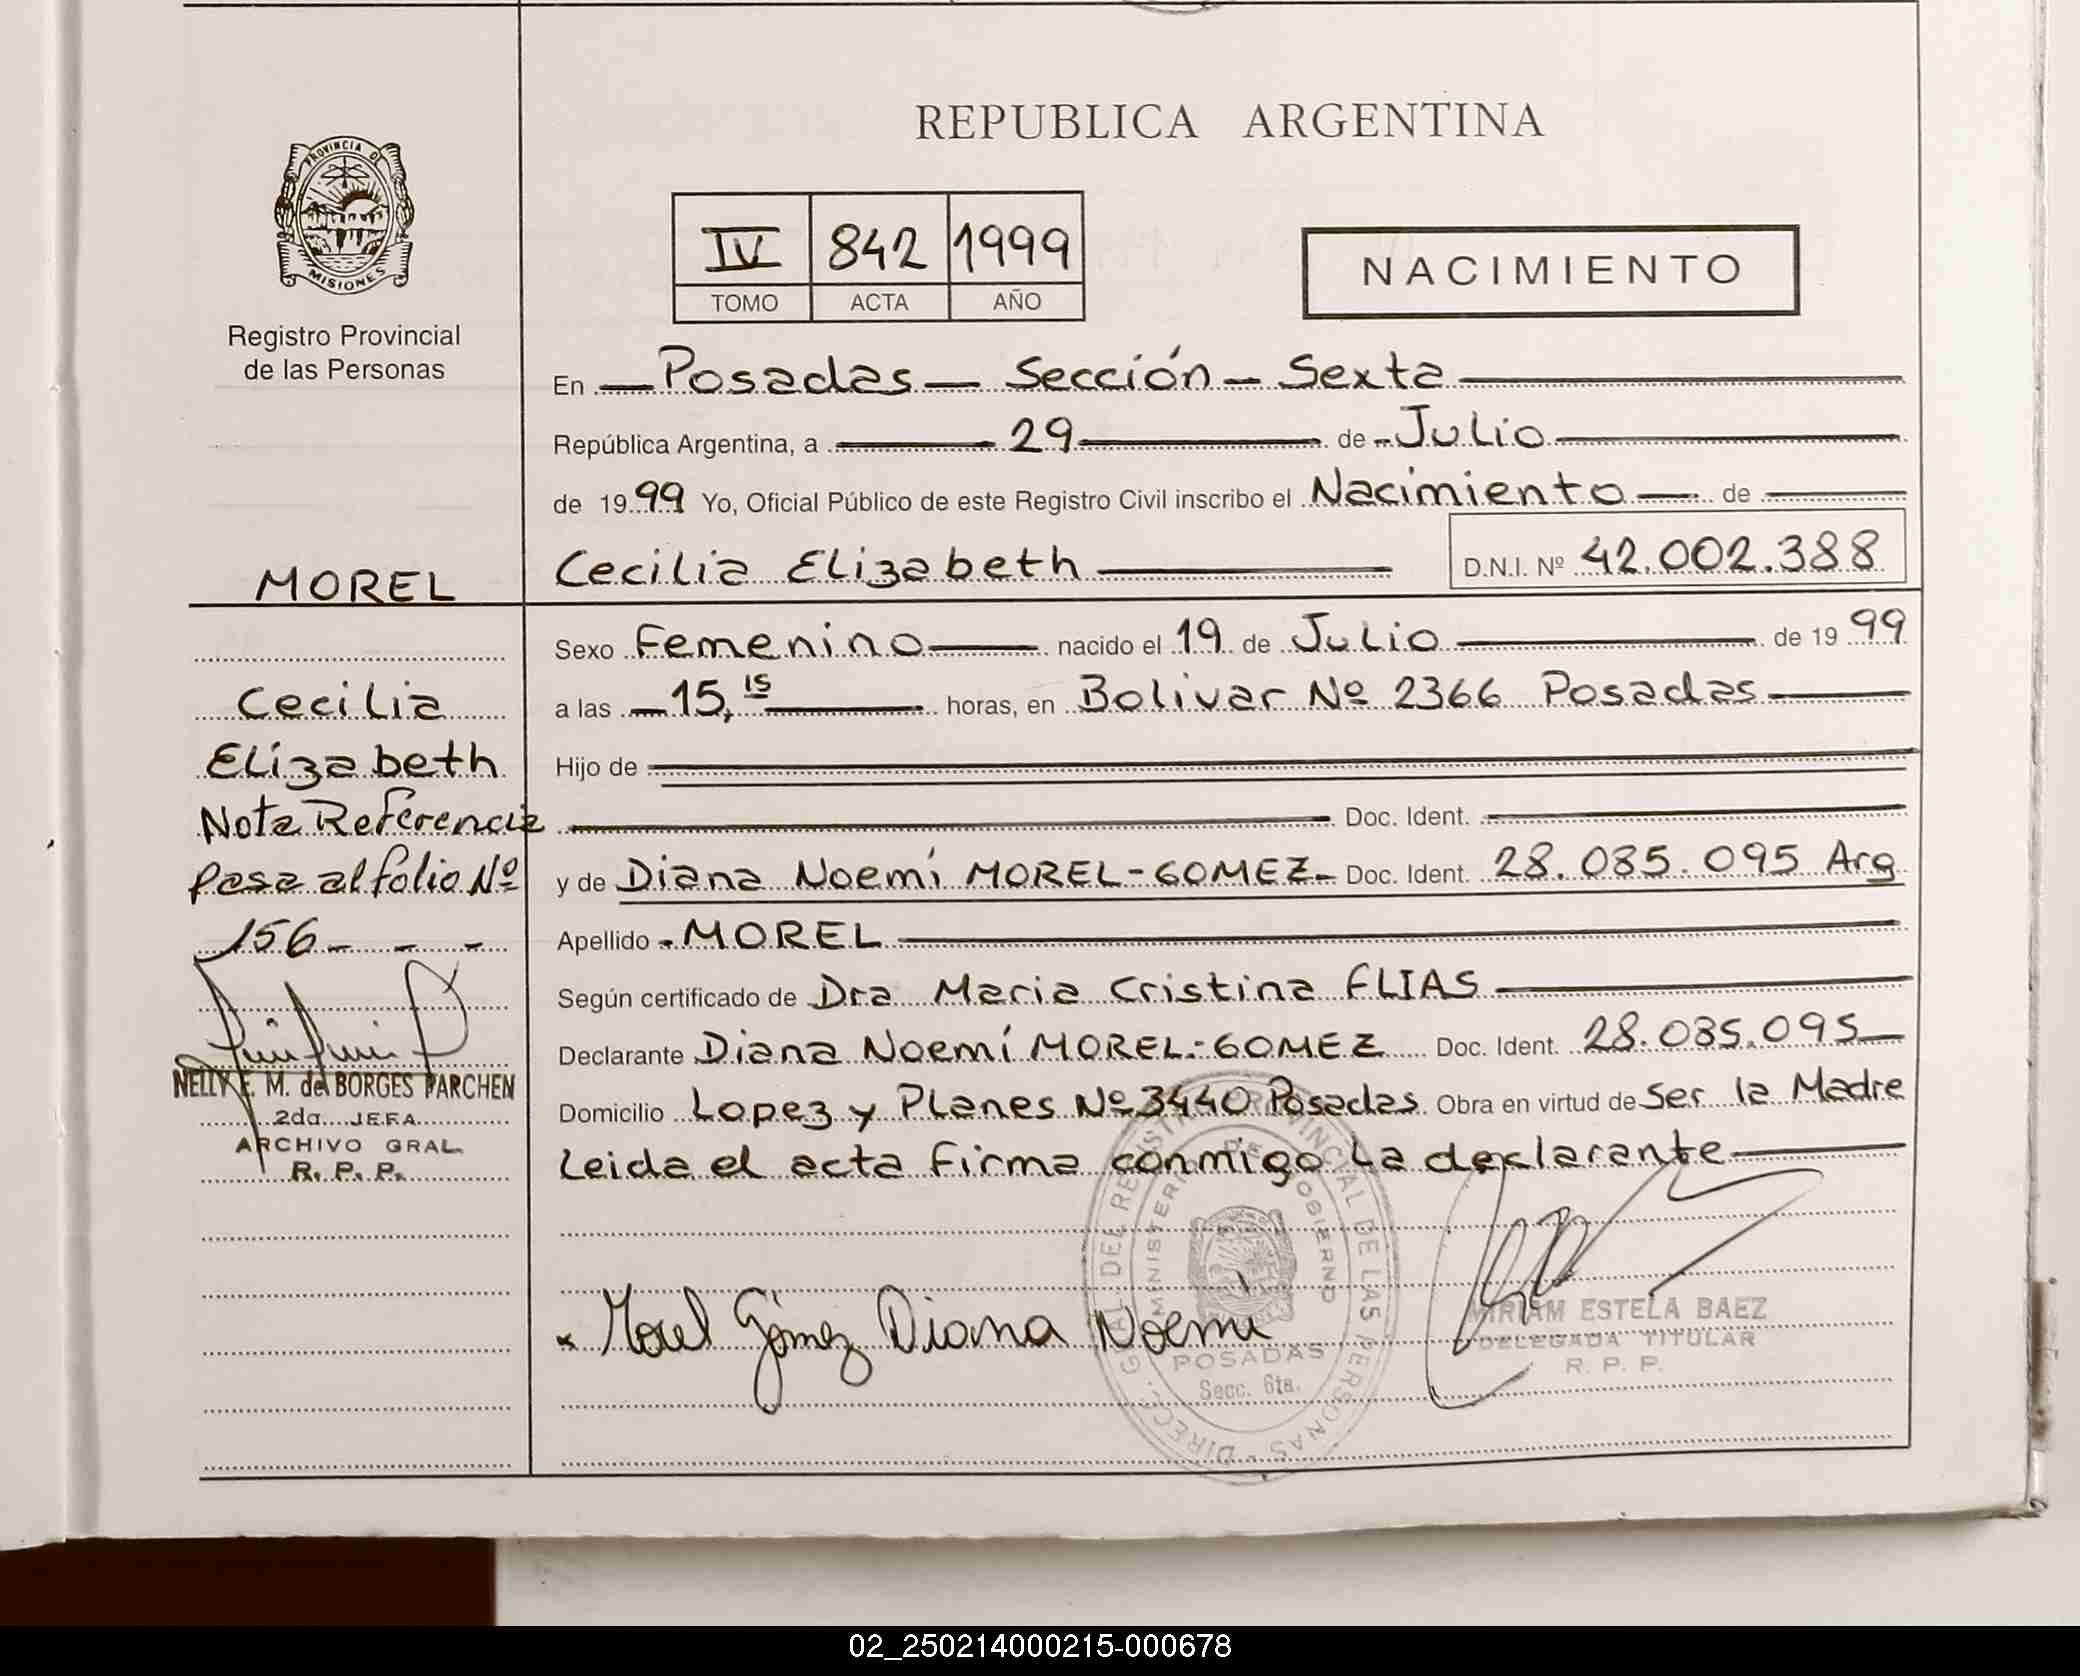 PROVINCIA DE
MISIONES
Registro Provincial
de las Personas
REPUBLICA ARGENTINA
IV 842 1999
TOMO ACTA AÑO
NACIMIENTO
En Posadas - Sección - Sexta
República Argentina, a 29 de Julio
de 1999 Yo, Oficial Público de este Registro Civil inscribo el Nacimiento de
Cecilia Elizabeth D.N.I. Nº 42.002.388
Sexo Femenino nacido el 19 de Julio de 1999
a las 15,15 horas, en Bolivar Nº 2366 Posadas
Hijo de
Doc. Ident.
y de Diana Noemí MOREL-GOMEZ- Doc. Ident. 28.085.095 Arg
Apellido - MOREL
Según certificado de Dra Maria Cristina ELIAS
Declarante Diana Noemí MOREL-GOMEZ Doc. Ident. 28.085.095
Domicilio Lopez y Planes Nº 3440 Posadas Obra en virtud de Ser la Madre
Leida el acta firma conmigo la declarante
MOREL
Cecilia
Elizabeth
Nota Referencia
pasa al folio Nº
156 - - -
NELLY E. M. de BORGES PARCHEN
2da. JEFA
ARCHIVO GRAL.
R. P. P.
x Morel Gómez Diana Noemí
DIREC. GRAL. DEL REGISTRO PROVINCIAL DE LAS PERSONAS
MINISTERIO DE GOBIERNO
POSADAS
Secc. 6ta.
MIRIAM ESTELA BAEZ
DELEGADA TITULAR
R. P. P.
02_250214000215-000678